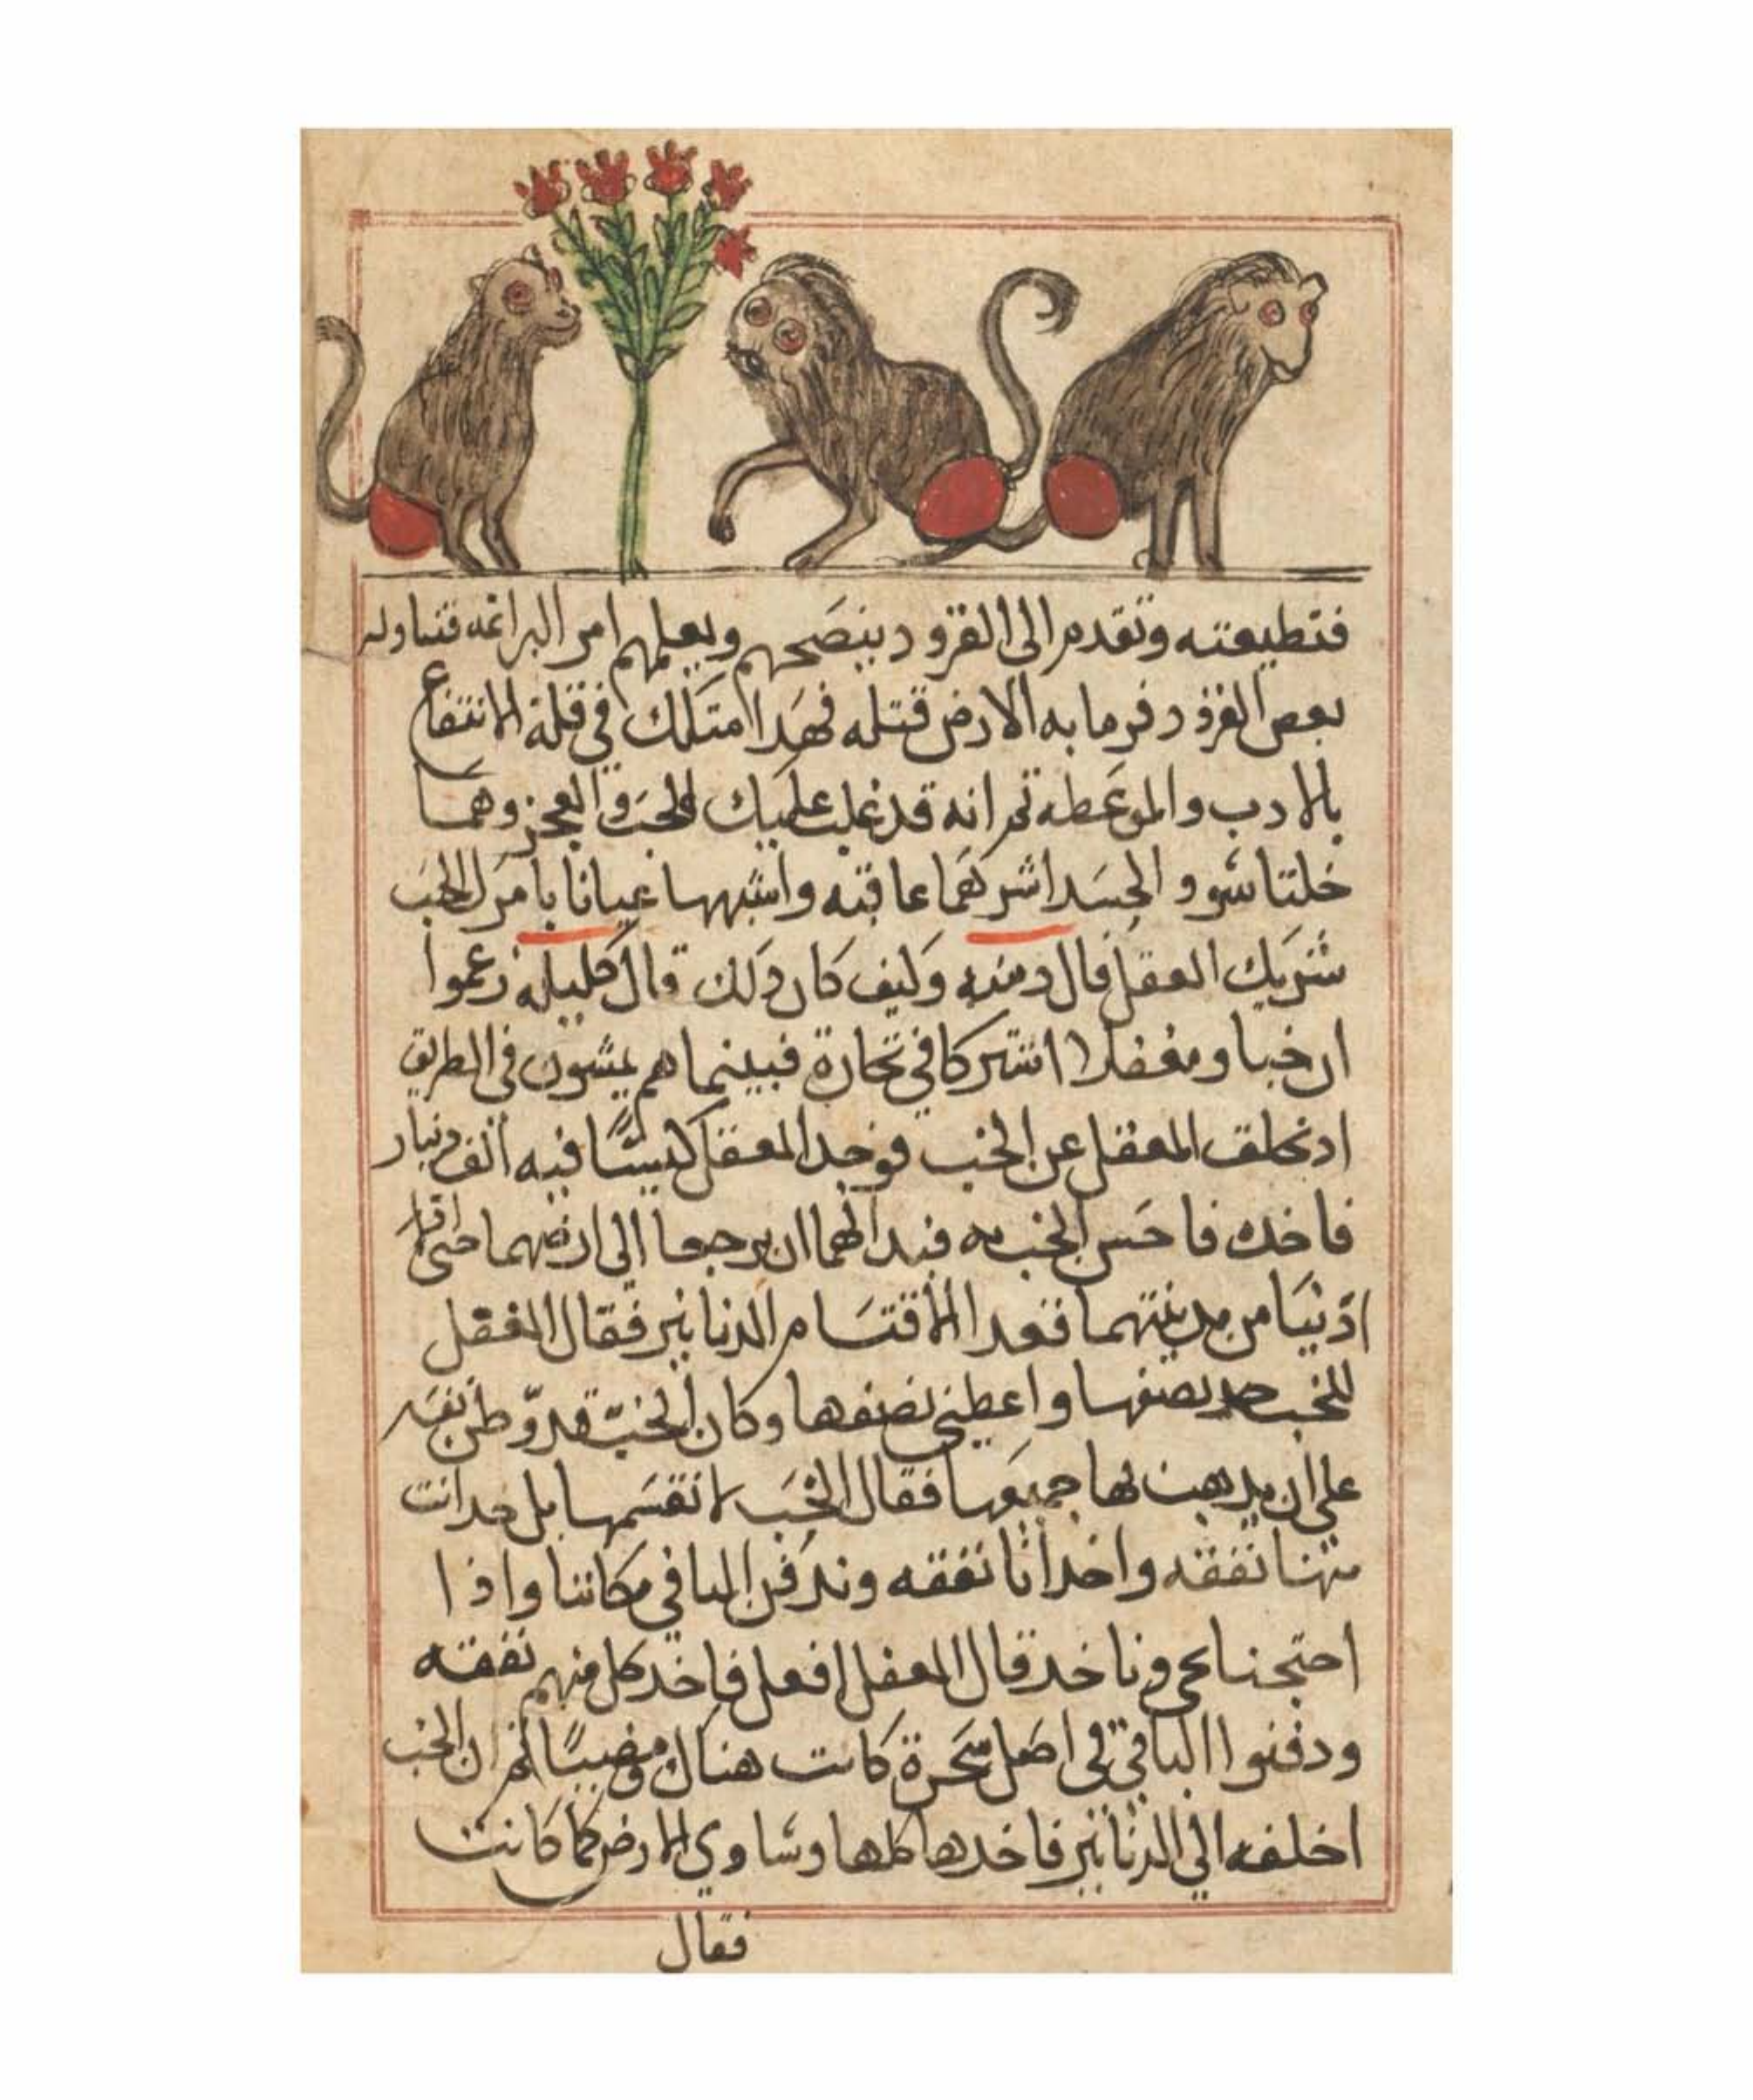 فتطيعته وتقدم الى القرود ينصحهم ويعلمهم امر البراعه فتناوله
بعض القرود فرما به الارض قتله فهدا متلك في قلة الانتفاع
بالادب والموعطه تم انه قد غلب عليك الخب والعجز وهما
خلتا سوو الجسد اشركهما عاقبه واشبهها عيانا بامر الخب
شريك العقل فال دمنه وكيف كان دلك قال كليله زعموا
ان خبا ومغفلا اشتركا في تجارة فبينما هم يمشون في الطريق
اد تخلف المغفل عن الخب فوجد المغفل كيسا فيه الف دينار
فاخده فاحس الخب به فبدا لهما ان يرجعا الى ارضهما حتى
ادنيا من مدينتهما فقعدا لاقتسام الدنانير فقال المغفل
للخب خد نصفها واعطني نصفها وكان الخب قد وطن نفسه
على ان يدهب بها جميعها فقال الخب لا نقسمها بل خد انت
منها نفقه واخد انا نفقه وندفن الباقي مكاننا واذا
احتجنا نجي وناخد قال المغفل افعل فاخد كل منهم نفقته
ودفنوا الباقي في اصل شجرة كانت هناك ثم ان الخب
اخلفه الي الدنانير فاخدها كلها وساوي الارض كما كانت
فقال